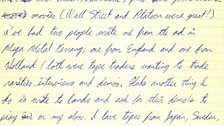 movies (Wall Street and Platoon were great!)
I've had two people write me from the ad in
Mega Metal Kerrang; one from England and one from
Holland. Both were tape traders wanting to trade
rarities, interviews and demos. Also another thing I
do is write to bands and ask for their demos to
play on my show. I have tapes from Japan, Sweden